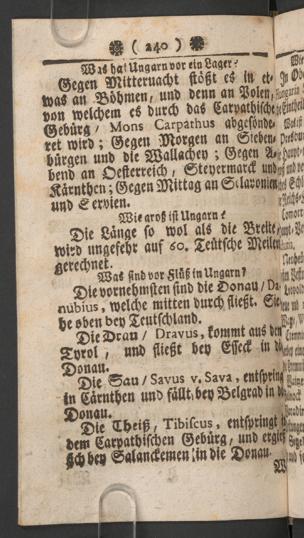 ( 240 )
Was hat Ungarn vor ein Lager?
Gegen Mitternacht stößt es in et-
was an Böhmen, und denn an Polen,
von welchem es durch das Carpathische
Gebürg / Mons Carpathus abgesönde-
ret wird; Gegen Morgen an Sieben-
bürgen und die Wallachey; Gegen A-
bend an Oesterreich, Steyermarck und
Kärnthen; Gegen Mittag an Sclavonien
und Servien.
Wie groß ist Ungarn?
Die Länge so wol als die Breite
wird ungefehr auf 60. Teütsche Meilen
gerechnet.
Was sind vor Flüß in Ungarn?
Die vornehmsten sind die Donau / Da-
nubius, welche mitten durch fließt. Sie-
he oben bey Teutschland.
Die Drau / Dravus, kommt aus dem
Tyrol, und fließt bey Esseck in die
Donau.
Die Sau / Savus v. Sava, entspring
in Cärnthen und fällt bey Belgrad in die
Donau.
Die Theiß, Tibiscus, entspringt
dem Carpathischen Gebürg, und ergieß
sich bey Salanckemen in die Donau.